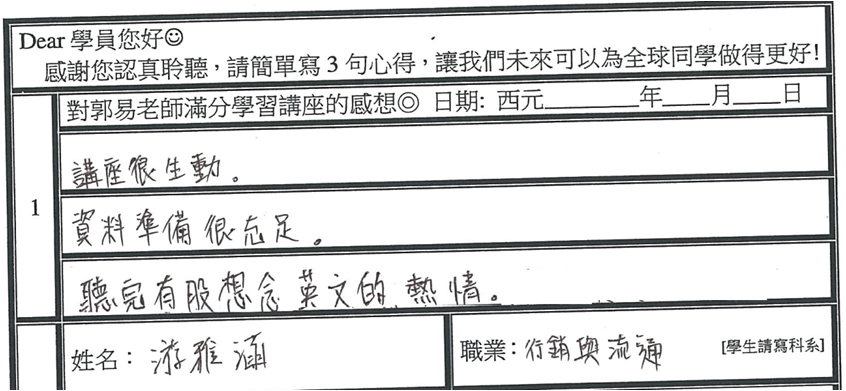 Dear 學員您好☺
感謝您認真聆聽，請簡單寫 3 句心得，讓我們未來可以為全球同學做得更好!
對郭易老師滿分學習講座的感想◎ 日期: 西元______年___月___日
1
講座很生動。
資料準備很充足。
聽完有股想念英文的熱情。
姓名： 游雅涵 職業：行銷與流通 [學生請寫科系]